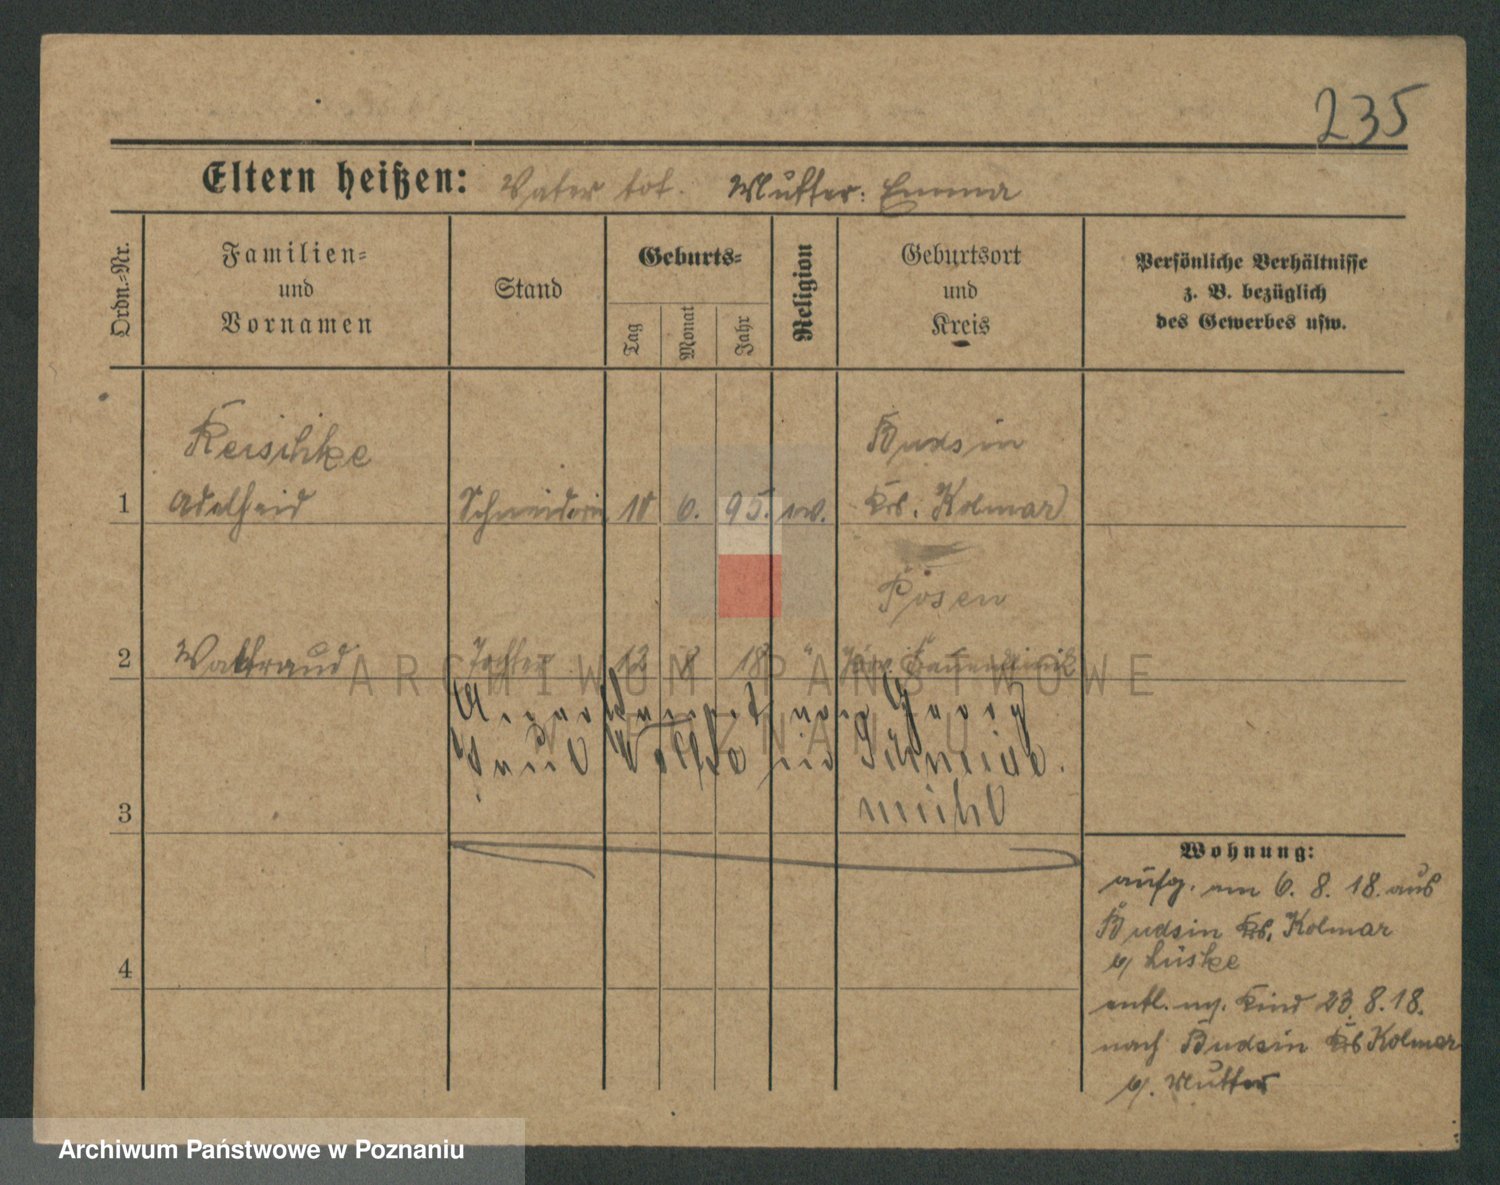 235
Eltern heißen: Vater tot. Mutter: Emma
Ordn.-Nr.
Familien-
und
Vornamen
Stand
Geburts-
Tag
Monat
Jahr
Religion
Geburtsort
und
Kreis
Persönliche Verhältnisse
z. B. bezüglich
des Gewerbes usw.
Reischke
Budsin
1 Adelheid Schneiderin 10 6. 95. ev. Krs. Kolmar
Posen
2 Waltraud Tochter 12 8 18 "
von Georg
Paul in Schneide
mühl
3
4
Wohnung:
aufg. am 6. 8. 18. aus
Budsin Krs. Kolmar
b/ Lüske
entl. m. Kind 23.8.18.
nach Budsin Krs Kolmar
b/. Mutter
ARCHIWUM PAŃSTWOWE
W POZNANIU
Archiwum Państwowe w Poznaniu